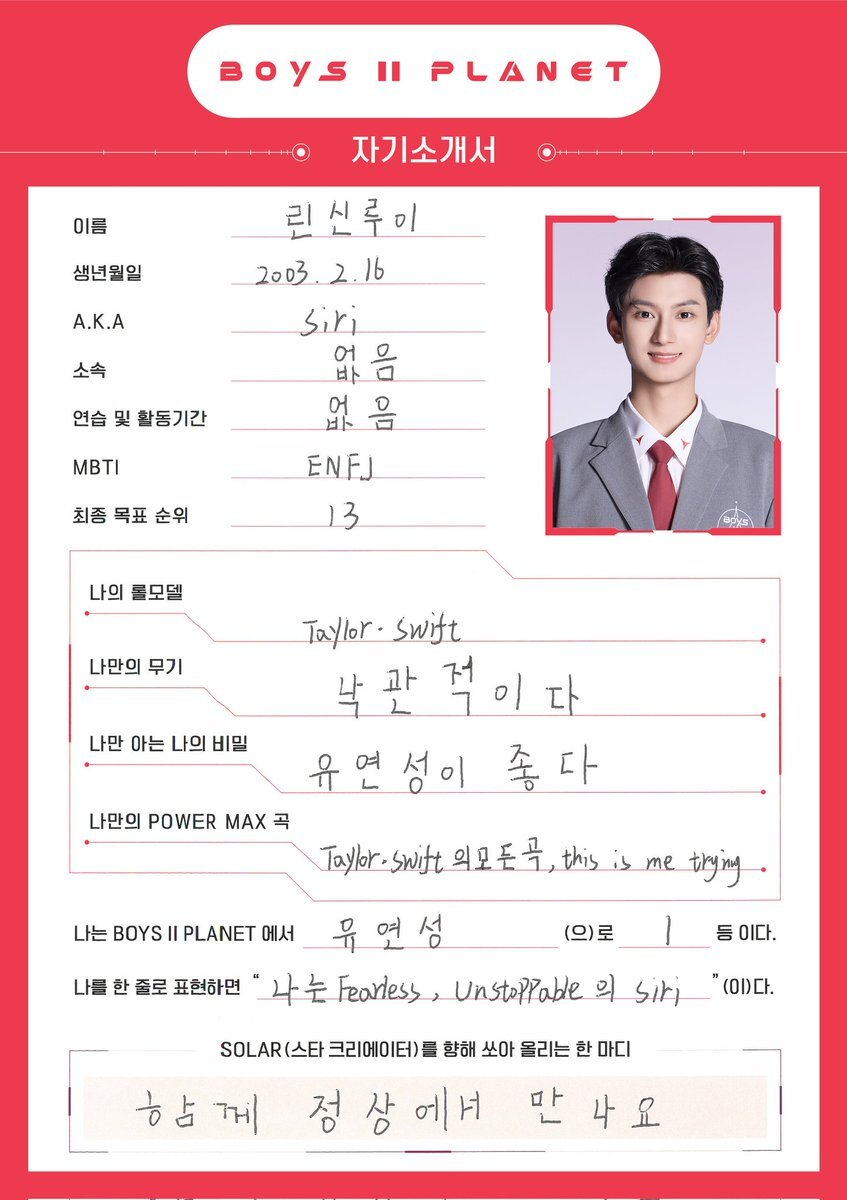 BOYS II PLANET
자기소개서
이름 린신루이
생년월일 2003. 2. 16
A.K.A siri
소속 없음
연습 및 활동기간 없음
MBTI ENFJ
최종 목표 순위 13
BOYS
나의 롤모델
Taylor·swift
나만의 무기
낙관적이다
나만 아는 나의 비밀
유연성이 좋다
나만의 POWER MAX 곡
Taylor·swift 의모든곡, this is me trying
나는 BOYS II PLANET 에서 유연성 (으)로 1 등 이다.
나를 한 줄로 표현하면 “ 나는 Fearless, Unstoppable 의 siri ” (이)다.
SOLAR(스타 크리에이터)를 향해 쏘아 올리는 한 마디
함께 정상에서 만나요